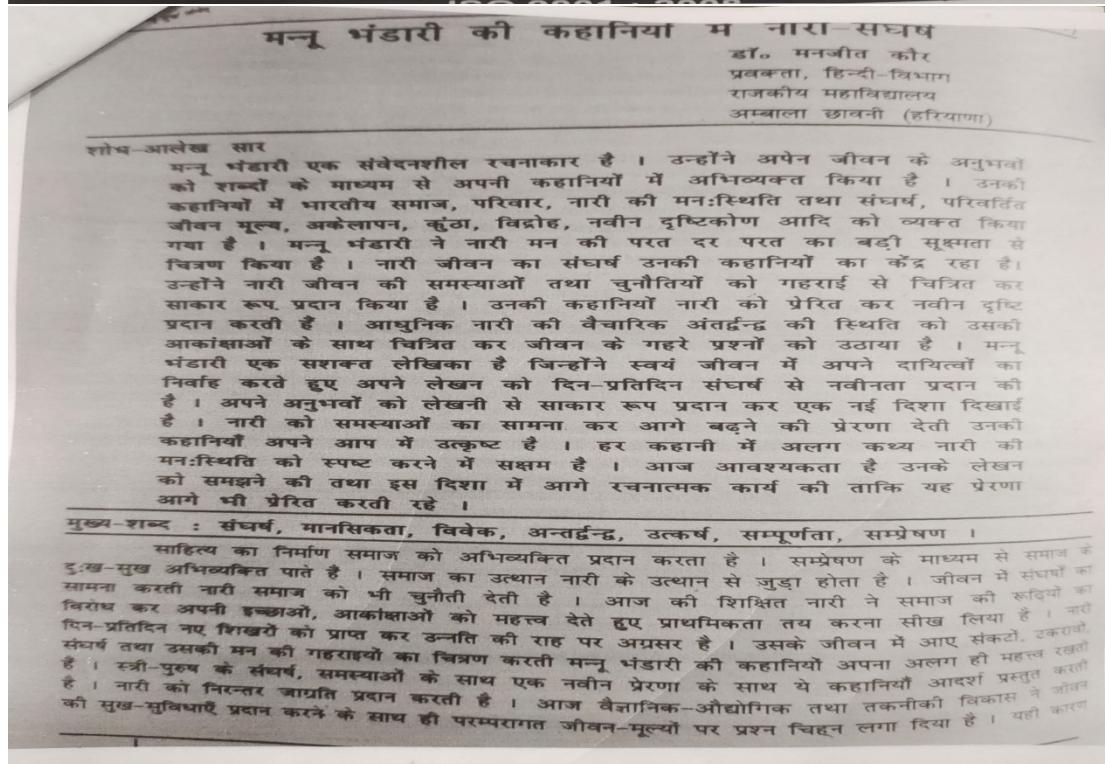 मन्नू भंडारी की कहानियों म नारी-संघर्ष
डॉ० मनजीत कौर
प्रवक्ता, हिन्दी-विभाग
राजकीय महाविद्यालय
अम्बाला छावनी (हरियाणा)
शोध-आलेख सार
मन्नू भंडारी एक संवेदनशील रचनाकार है । उन्होंने अपेन जीवन के अनुभवों
को शब्दों के माध्यम से अपनी कहानियों में अभिव्यक्त किया है । उनकी
कहानियों में भारतीय समाज, परिवार, नारी की मन:स्थिति तथा संघर्ष, परिवर्तित
जीवन मूल्य, अकेलापन, कुंठा, विद्रोह, नवीन दृष्टिकोण आदि को व्यक्त किया
गया है । मन्नू भंडारी ने नारी मन की परत दर परत का बड़ी सूक्ष्मता से
चित्रण किया है । नारी जीवन का संघर्ष उनकी कहानियों का केंद्र रहा है।
उन्होंने नारी जीवन की समस्याओं तथा चुनौतियों को गहराई से चित्रित कर
साकार रूप प्रदान किया है । उनकी कहानियाँ नारी को प्रेरित कर नवीन दृष्टि
प्रदान करती हैं । आधुनिक नारी की वैचारिक अंतर्द्वन्द्व की स्थिति को उसकी
आकांक्षाओं के साथ चित्रित कर जीवन के गहरे प्रश्नों को उठाया है । मन्नू
भंडारी एक सशक्त लेखिका है जिन्होंने स्वयं जीवन में अपने दायित्वों का
निर्वाह करते हुए अपने लेखन को दिन-प्रतिदिन संघर्ष से नवीनता प्रदान की
है । अपने अनुभवों को लेखनी से साकार रूप प्रदान कर एक नई दिशा दिखाई
है । नारी को समस्याओं का सामना कर आगे बढ़ने की प्रेरणा देती उनकी
कहानियाँ अपने आप में उत्कृष्ट है । हर कहानी में अलग कथ्य नारी की
मन:स्थिति को स्पष्ट करने में सक्षम है । आज आवश्यकता है उनके लेखन
को समझने की तथा इस दिशा में आगे रचनात्मक कार्य की ताकि यह प्रेरणा
आगे भी प्रेरित करती रहे ।
मुख्य-शब्द : संघर्ष, मानसिकता, विवेक, अन्तर्द्वन्द्व, उत्कर्ष, सम्पूर्णता, सम्प्रेषण ।
साहित्य का निर्माण समाज को अभिव्यक्ति प्रदान करता है । सम्प्रेषण के माध्यम से समाज के
दु:ख-सुख अभिव्यक्ति पाते है । समाज का उत्थान नारी के उत्थान से जुड़ा होता है । जीवन में संघर्षों का
सामना करती नारी समाज को भी चुनौती देती है । आज की शिक्षित नारी ने समाज की रूढ़ियों का
विरोध कर अपनी इच्छाओं, आकांक्षाओं को महत्त्व देते हुए प्राथमिकता तय करना सीख लिया है । नारी
दिन-प्रतिदिन नए शिखरों को प्राप्त कर उन्नति की राह पर अग्रसर है । उसके जीवन में आए संकटों, टकरावों,
संघर्ष तथा उसकी मन की गहराइयों का चित्रण करती मन्नू भंडारी की कहानियाँ अपना अलग ही महत्त्व रखती
है । स्त्री-पुरुष के संघर्ष, समस्याओं के साथ एक नवीन प्रेरणा के साथ ये कहानियाँ आदर्श प्रस्तुत करती
है । नारी को निरन्तर जाग्रति प्रदान करती है । आज वैज्ञानिक-औद्योगिक तथा तकनीकी विकास ने जीवन
की सुख-सुविधाएँ प्रदान करने के साथ ही परम्परागत जीवन-मूल्यों पर प्रश्न चिह्न लगा दिया है । यही कारण